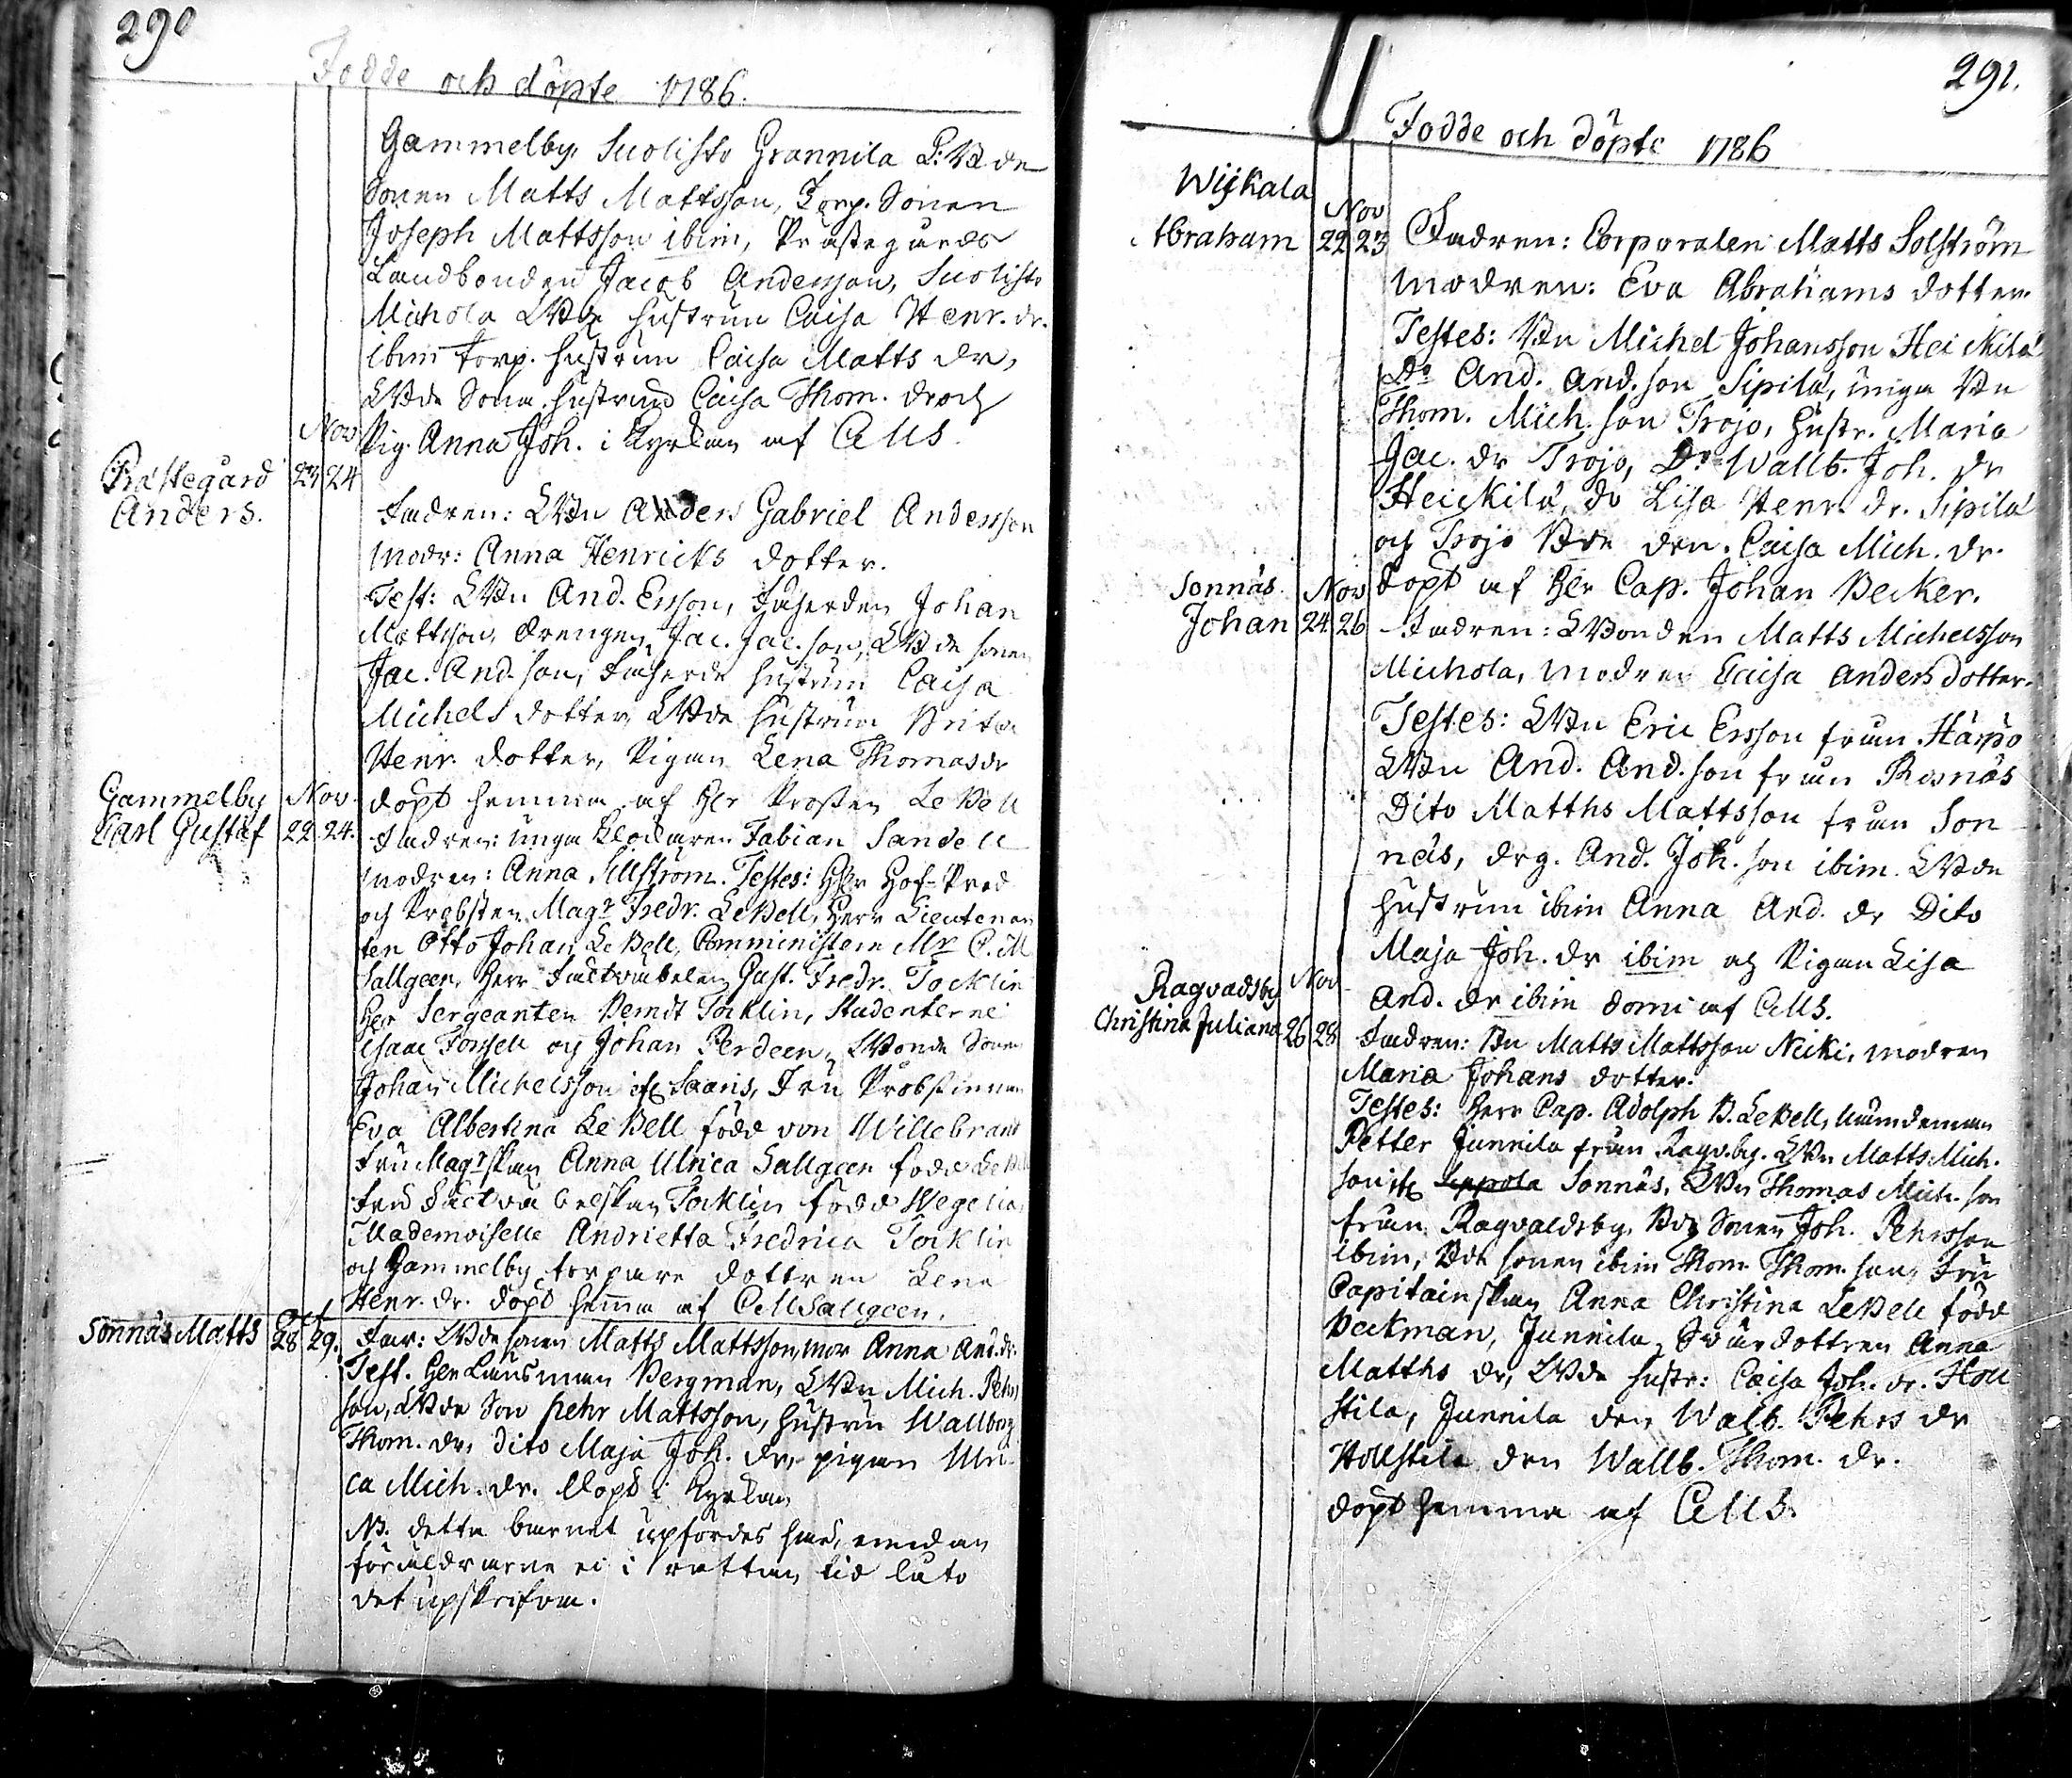 290
Födde och döpte 1786.
Gammelby, Suolisto Grannila L:Bde
Sonen Matts Mattsson, Torp. Sonen
Joseph Mattsson ibm, Prästegårds
Landbonden Jacob Andersson, Suolisto
Michola LBde hustrun Caisa Henr. dr.
ibm torp. hustrun Caisa Matts dr,
LBde Sona hustrun Caisa Thom. dr och
Pig. Anna Joh. i Kyrkan af CMS.
Prästegård Nov
Anders. 23 24
Fadren: LBn Anders Gabriel Andersson
modr: Anna Henricks dotter.
Test: LBn And. Ersson, Johan
Mattsson, drengen Jac. Jac. son, LBde sonen
Jac. And. son, hustrun Caisa
Michels dotter, LBde hustrun Brita
Henr. dotter, Pigan Lena Thomas dr
döpt hemma af Hr Prosten LeBell
Gammelby Nov.
Carl Gustaf 22. 24.
Fadren: unga Klockaren Fabian Sandell
modren: Anna Sellström. Testes: Hr Hof-Pred
och Probsten Magr Fredr. LeBell, Herr Lieutenan
ten Otto Johan LeBell, Comministern Mr C. M
Sallgeen, Herr Gust. Fredr. Tocklin
Herr Sergeanten Berndt Tocklin, Studenterne
Isaac Forssell och Johan Perdeen, LBonde Sonen
Johan Michelsson ifr Saaris, Fru Probstinnan
Eva Albertina LeBell född von Willebrand
Fru Magrskan Anna Ulrica Sallgeen född LeBell
Fru Tocklin född Wegelia
Mademoiselle Andrietta Fredrica Tocklin
och Gammelby torpare dottren Lena
Henr. dr. döpt hemma af CMSallgeen.
Sonnäs Matts Oct 28 29.
Far: LBde sonen Matts Mattsson, mor Anna And. dr.
Test. Herr Länsman Bergman, LBn Mich. Pehrs
son, LBde Son Pehr Mattsson, hustru Wallborg
Thom. dr, dito Maja Joh. dr, pigan Ulri
ca Mich. dr. döpt i Kyrkan
NB. detta barnet upfördes här, emedan
föräldrarne ei i rättan tid låto
det upskrifva.
291.
Födde och döpte 1786
Wijkala Nov
Abraham 22 23
Fadren: Corporalen Matts Solström
modren: Eva Abrahams dotter.
Testes: Bn Michel Johansson Heickilä
Do And. And. son Sipilä, unga Bn
Thom. Mich. son Trojo, hustr. Maria
Jac. dr Trojo, Do Wallb. Joh. dr
Heickilä, do Lisa Henr. dr. Sipilä
och Trojo Bde drn. Caisa Mich. dr.
döpt af Herr Cap. Johan Becker.
Sonnäs Nov
Johan 24 26
Fadren: LBonden Matts Michelsson
Michola, modren Caisa Anders dotter.
Testes: LBn Eric Ersson från Härpö
LBn And. And. son från Risnäs
Dito Matths Mattsson från Son
näs, drg. And. Joh. son ibim. LBde
hustrun ibim Anna And. dr Dito
Maja Joh. dr ibim och Pigan Lisa
And. dr ibim domi af CMS.
Ragvadsby Nov
Christina Juliana 26 28
Fadren: Bn Matts Mattsson Neiki, modren
Maria Johans dotter.
Testes: Herr Cap. Adolph B. LeBell, Nämdeman
Petter Junnila från Ragv.by. LBn Matts Mich.
son ifr Seppola Sonnäs, LBn Thomas Mich. son
från Ragvaldsby, Bde Sonen Joh. Pehrsson
ibim, Bde sonen ibim Thom. Thom. son, Fru
Capitainskan Anna Christina LeBell född
Beckman, Junnila Svärdottren Anna
Matths dr, LBde hustr: Caisa Joh. dr. Holl
stila, Junnila drn Walb. Pehrs dr
Hollstila drn Wallb. Thom. dr.
döpt hemma af CMS.